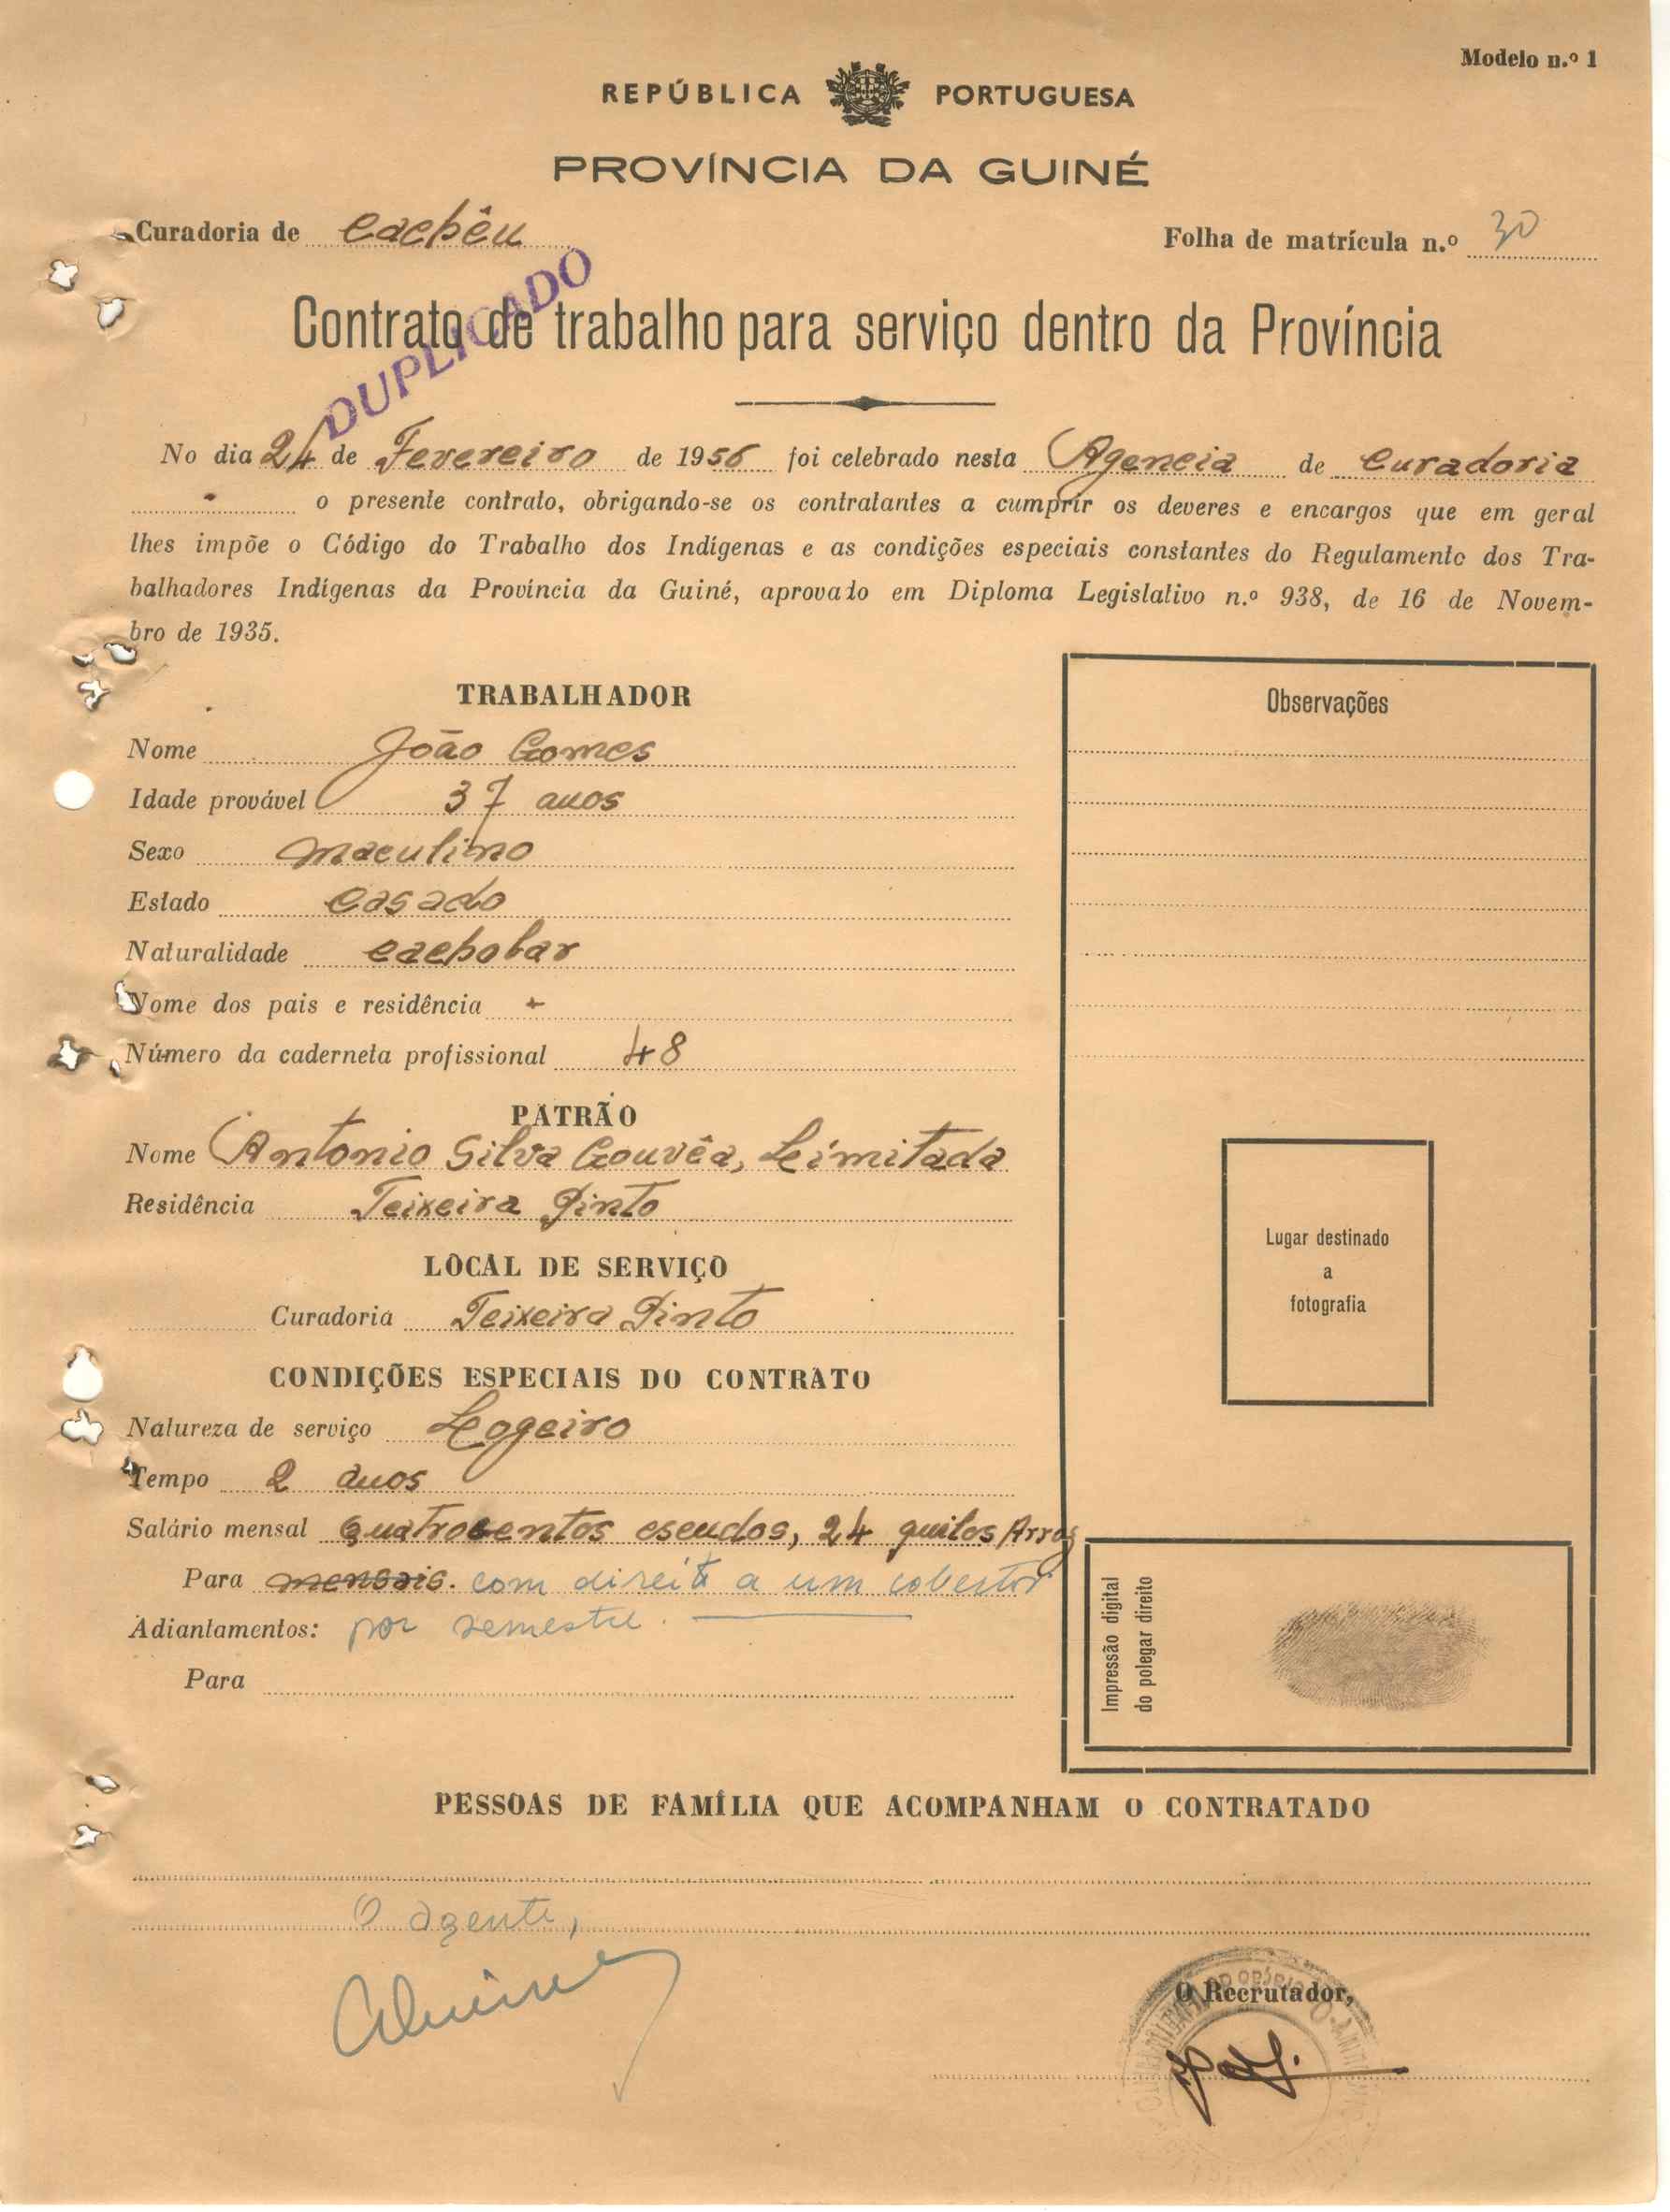 Modelo n.º 1
REPÚBLICA PORTUGUESA
PROVÍNCIA DA GUINÉ
Curadoria de Cachêu
Folha de matrícula n.º 30
DUPLICADO
Contrato de trabalho para serviço dentro da Província
No dia 24 de Fevereiro de 1956 foi celebrado nesta Agencia de Curadoria
o presente contrato, obrigando-se os contratantes a cumprir os deveres e encargos que em geral
lhes impõe o Código do Trabalho dos Indígenas e as condições especiais constantes do Regulamento dos Tra-
balhadores Indígenas da Província da Guiné, aprovado em Diploma Legislativo n.º 938, de 16 de Novem-
bro de 1935.
TRABALHADOR
Nome João Gomes
Idade provável 37 anos
Sexo Maculino
Estado Casado
Naturalidade Cacholar
Nome dos pais e residência
Número da caderneta profissional 48
PATRÃO
Nome Antonio Silva Gouvêa, Limitada
Residência Teixeira Pinto
LOCAL DE SERVIÇO
Curadoria Teixeira Pinto
CONDIÇÕES ESPECIAIS DO CONTRATO
Natureza de serviço Logeiro
Tempo 2 anos
Salário mensal Quatrocentos escudos, 24 quilos Arroz
Para mensais. com direito a um cobertor
Adiantamentos: por semestre.
Para
Observações
Lugar destinado
a
fotografia
Impressão digital
do polegar direito
PESSOAS DE FAMÍLIA QUE ACOMPANHAM O CONTRATADO
O agente,
O Recrutador,